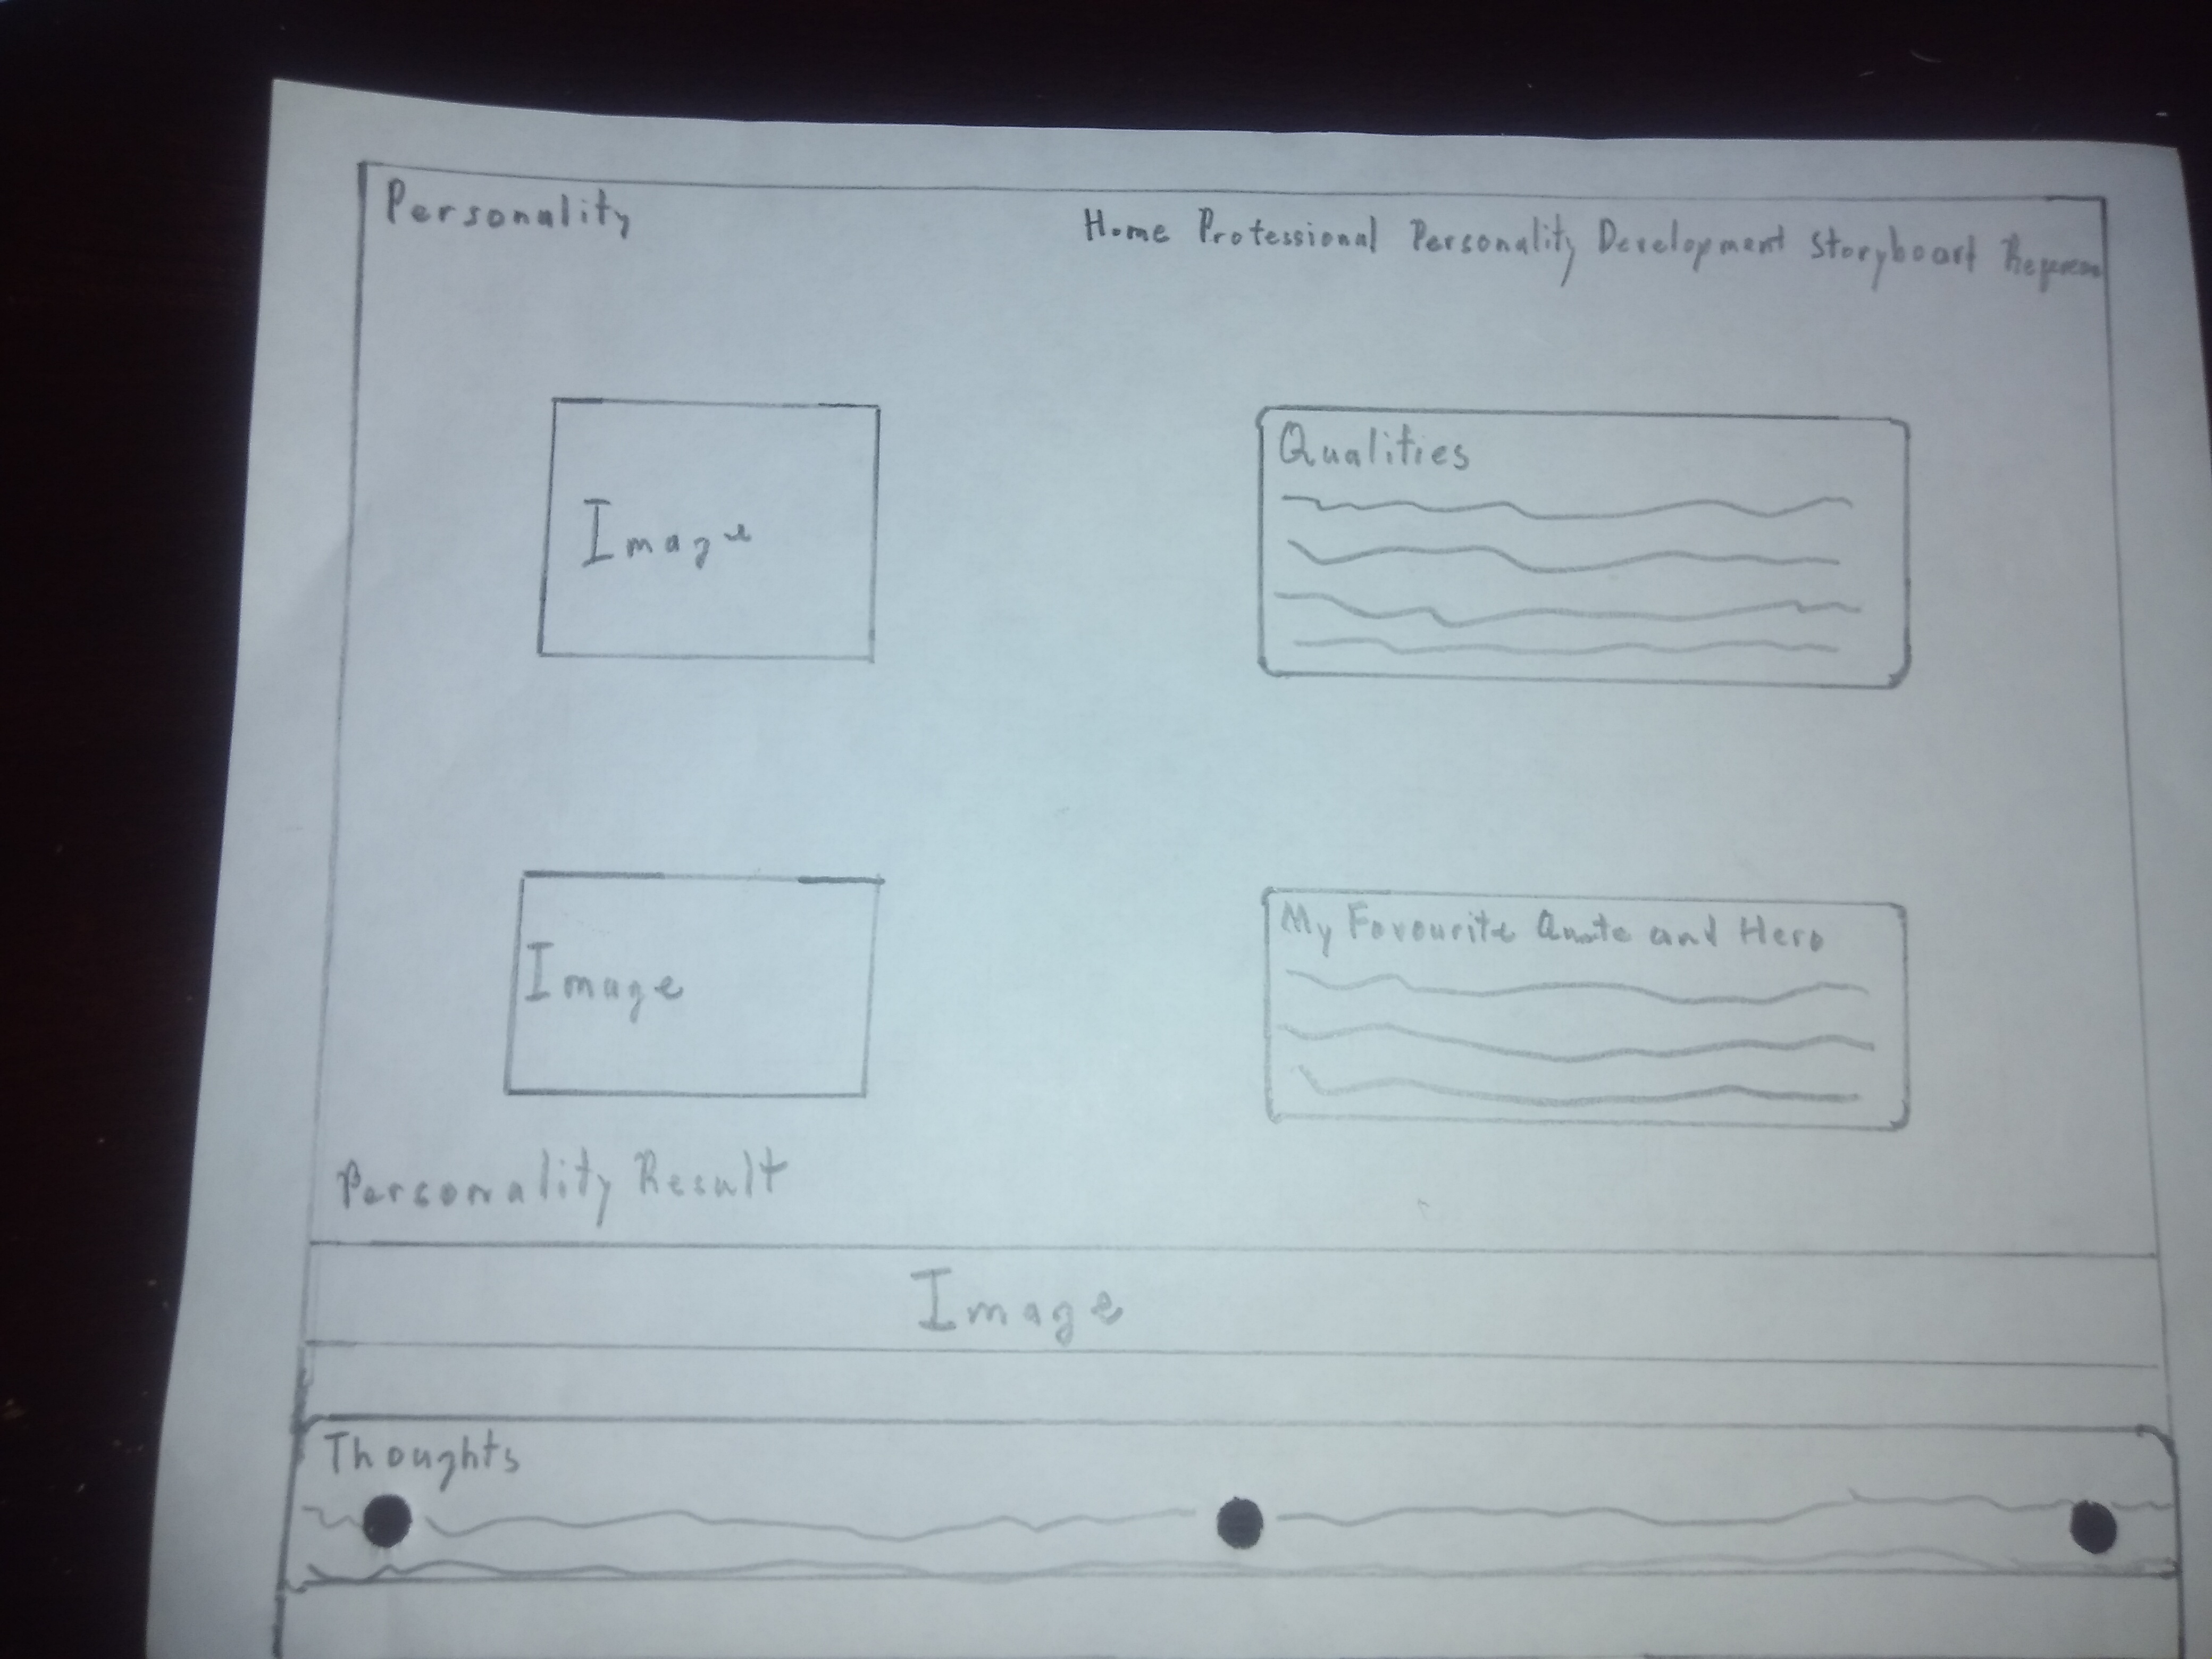 Personality
Home Professional Personality Development Storyboart
Image
Qualities
Image
My Favourite Quote and Hero
Personality Result
Image
Thoughts